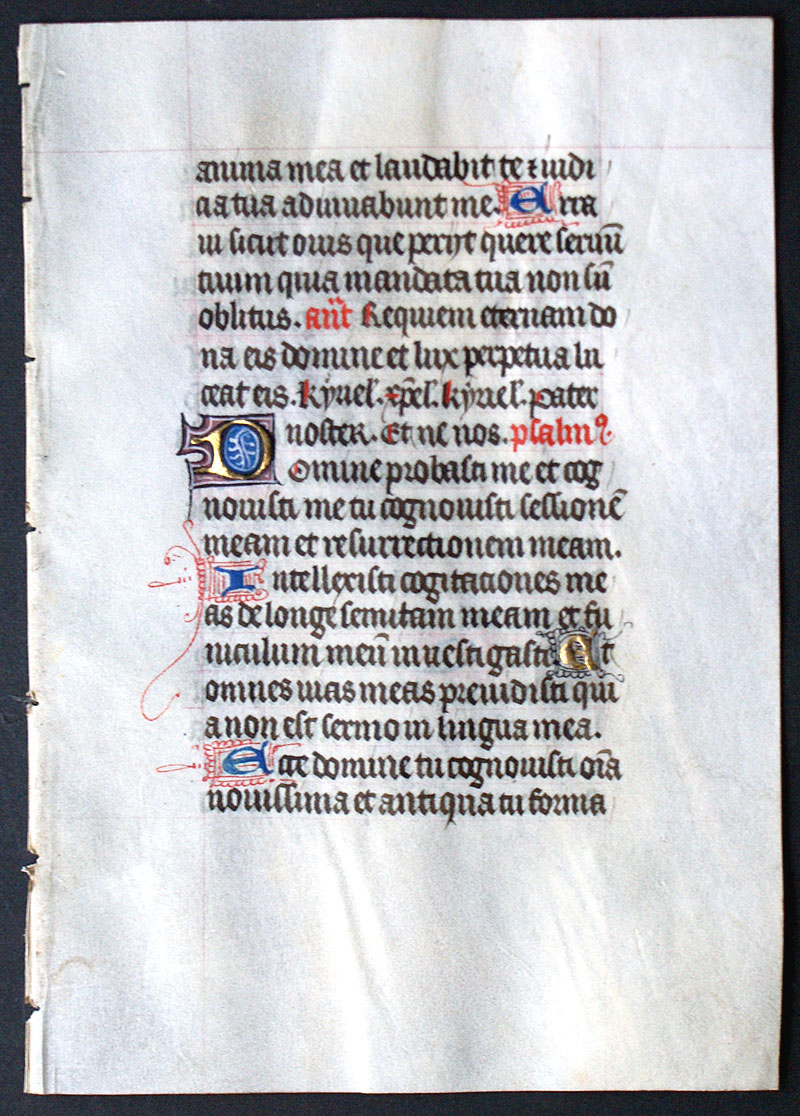 anima mea et laudabit te ⁊ iudi
cia tua adiuuabunt me. Erra
ui sicut ouis que perijt quere seruū
tuum quia mandata tua non sū
oblitus. an̄t Requiem eternam do
na eis domine et lux perpetua lu
ceat eis. kyriel. xp̄el. kyriel. Pater
noster. Et ne nos. psalmꝰ.
Domine probasti me et cog
nouisti me tu cognouisti sessionē
meam et resurrectionem meam.
Intellexisti cogitaciones me
as de longe semitam meam et fu
niculum meū inuestigasti Et
omnes uias meas preuidisti qui
a non est sermo in lingua mea.
Ecce domine tu cognouisti oīa
nouissima et antiqua tu forma